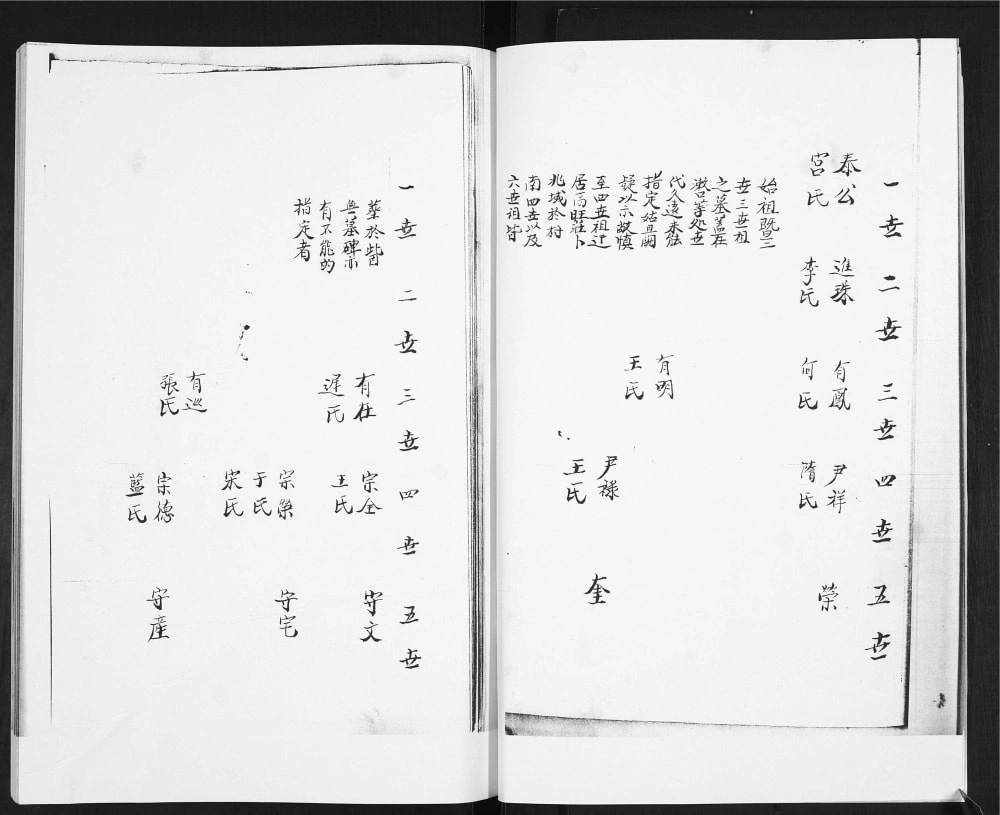 一世 二世 三世 四世 五世
泰公 進珠 有鳳 尹祥 榮
宮氏 李氏 何氏 隋氏
始祖暨二
世三世祖
之墓蓋在
茔处世
代久遠未能
指定姑且闕
疑以示故慎
至四世祖迁
居高旺莊卜
兆域於村
南四世以及
六世祖皆
有明 尹祿 奎
王氏 王氏
一世 二世 三世 四世 五世
葬於
無墓碑亦
有不能的
指定者
有在 宗全 守文
遲氏 王氏
宗榮 守宅
于氏
宋氏
有巡 宗德 守產
張氏 藍氏